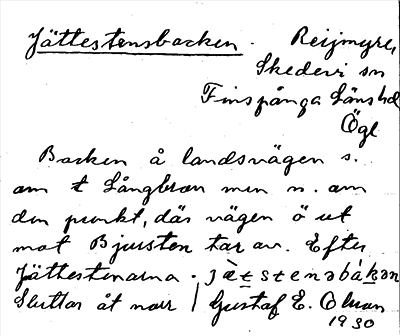 Jättestensbacken. Reijmyre,
Skedevi sn
Finspånga länshd
Ögl
Backen å landsvägen s.
om t Långbron men n. om
den punkt, där vägen ö ut
mot Bjursten tar av. Efter
Jättestenarna. jæ̀t̲stenəbàk̲ən
Sluttar åt norr / Gustaf E. Olsson
1930